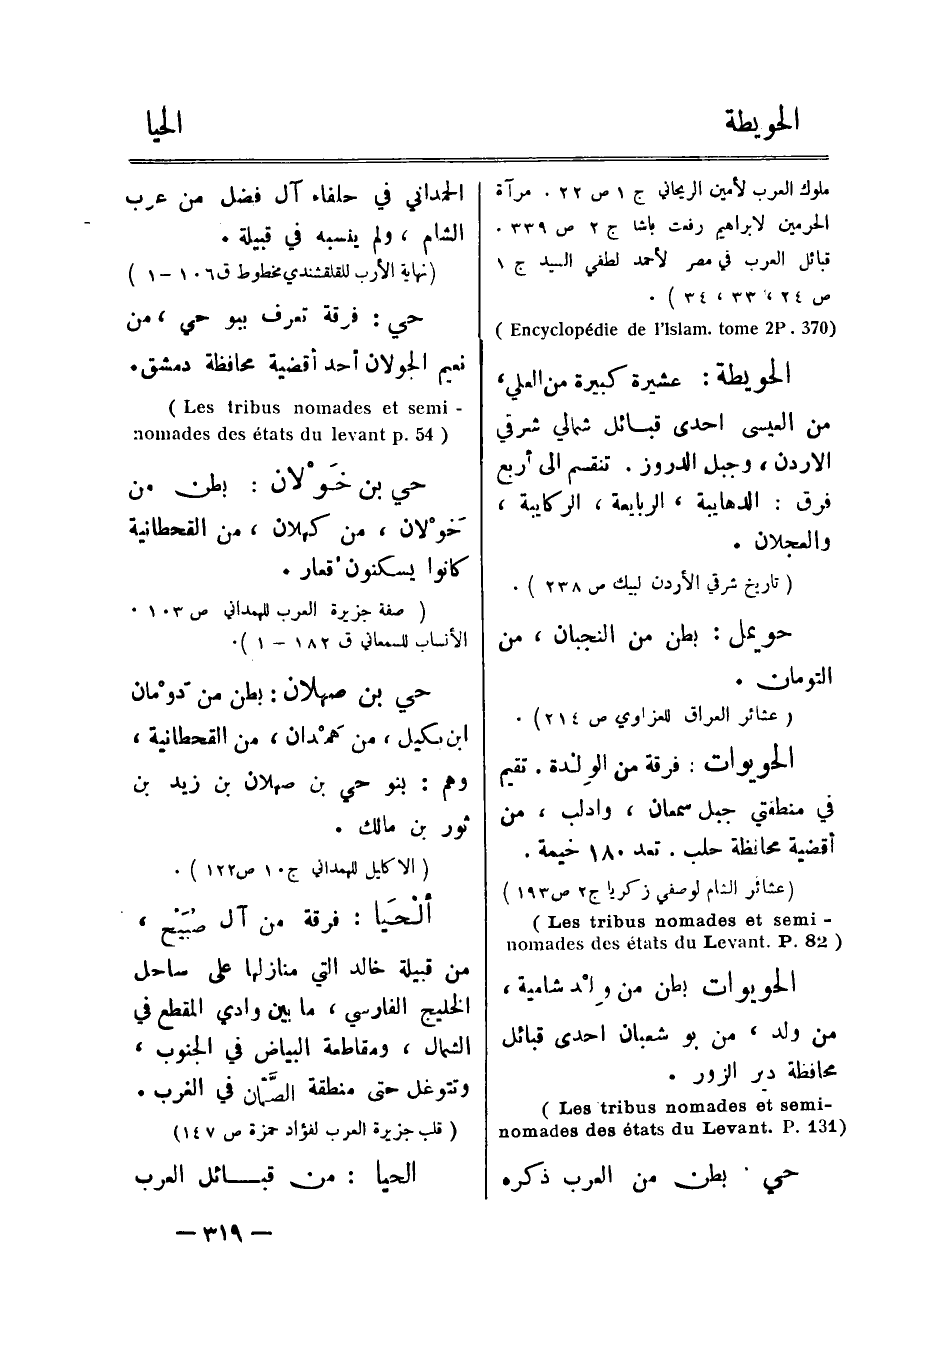 الحويطة
الحيا
ملوك العرب لأمين الريحاني ج ١ ص ٢٢ . مرآة
الحرمين لابراهيم رفعت باشا ج ٢ ص ٣٣٩ .
قبائل العرب في مصر لأحمد لطفي السيد ج ١
ص ٢٤ ، ٣٣ ، ٣٤ ) .
( Encyclopédie de l'Islam. tome 2P . 370)
الحويطة : عشيرة كبيرة من العلي ،
من العيسى احدى قبائل شمالي شرقي
الاردن ، وجبل الدروز . تنقسم الى أربع
فرق : الدهايبة ، الربابعة ، الركايبة ،
والعجلان .
( تاريخ شرقي الأردن لبيك ص ٢٣٨ ) .
حويمل : بطن من النجبان ، من
التومان .
( عشائر العراق للعزاوي ص ٢١٤) .
الحويوات : فرقة من الولدة . تقيم
في منطقتي جبل سمعان ، وادلب ، من
أقضية محافظة حلب . تعد ١٨٠ خيمة .
(عشائر الشام لوصفي زكريا ج٢ ص١٩٣ )
( Les tribus nomades et semi -
nomades des états du Levant. P. 82 )
الحويوات بطن من ولد شامية ،
من ولد ، من بو شعبان احدى قبائل
محافظة دير الزور .
( Les tribus nomades et semi-
nomades des états du Levant. P. 131)
حي . بطن من العرب ذكره
الحمداني في حلفاء آل فضل من عرب
الشام ، ولم ينسبه في قبيلة .
(نهاية الأرب للقلقشندي مخطوط ق١٠٦ –١ )
حي : فرقة تعرف ببو حي ، من
نعيم الجولان أحد أقضية محافظة دمشق.
( Les tribus nomades et semi -
nomades des états du levant p. 54 )
حي بن خَوْلان : بطن من
خَوْلان ، من كهلان ، من القحطانية
كانوا يسكنون قعار .
( صفة جزيرة العرب للهمداني ص ١٠٣ .
الأنساب للسمعاني ق ١٨٢ – ١ ).
حي بن صهلان : بطن من دَوْمان
ابن بكيل ، من هَمْدان ، من القحطانية ،
وهم : بنو حي بن صهلان بن زيد بن
ثور بن مالك .
( الاكليل للهمداني ج١٠ ص١٢٢ ) .
ألْحَيا : فرقة من آل صُبَيْح ،
من قبيلة خالد التي منازلها على ساحل
الخليج الفارسي ، ما بين وادي المقطع في
الشمال ، ومقاطعة البياض في الجنوب ،
وتتوغل حتى منطقة الصَّمّان في الغرب .
( قلب جزيرة العرب لفؤاد حمزة ص ١٤٧)
الحيا : من قبـــائل العرب
— ٣١٩ —